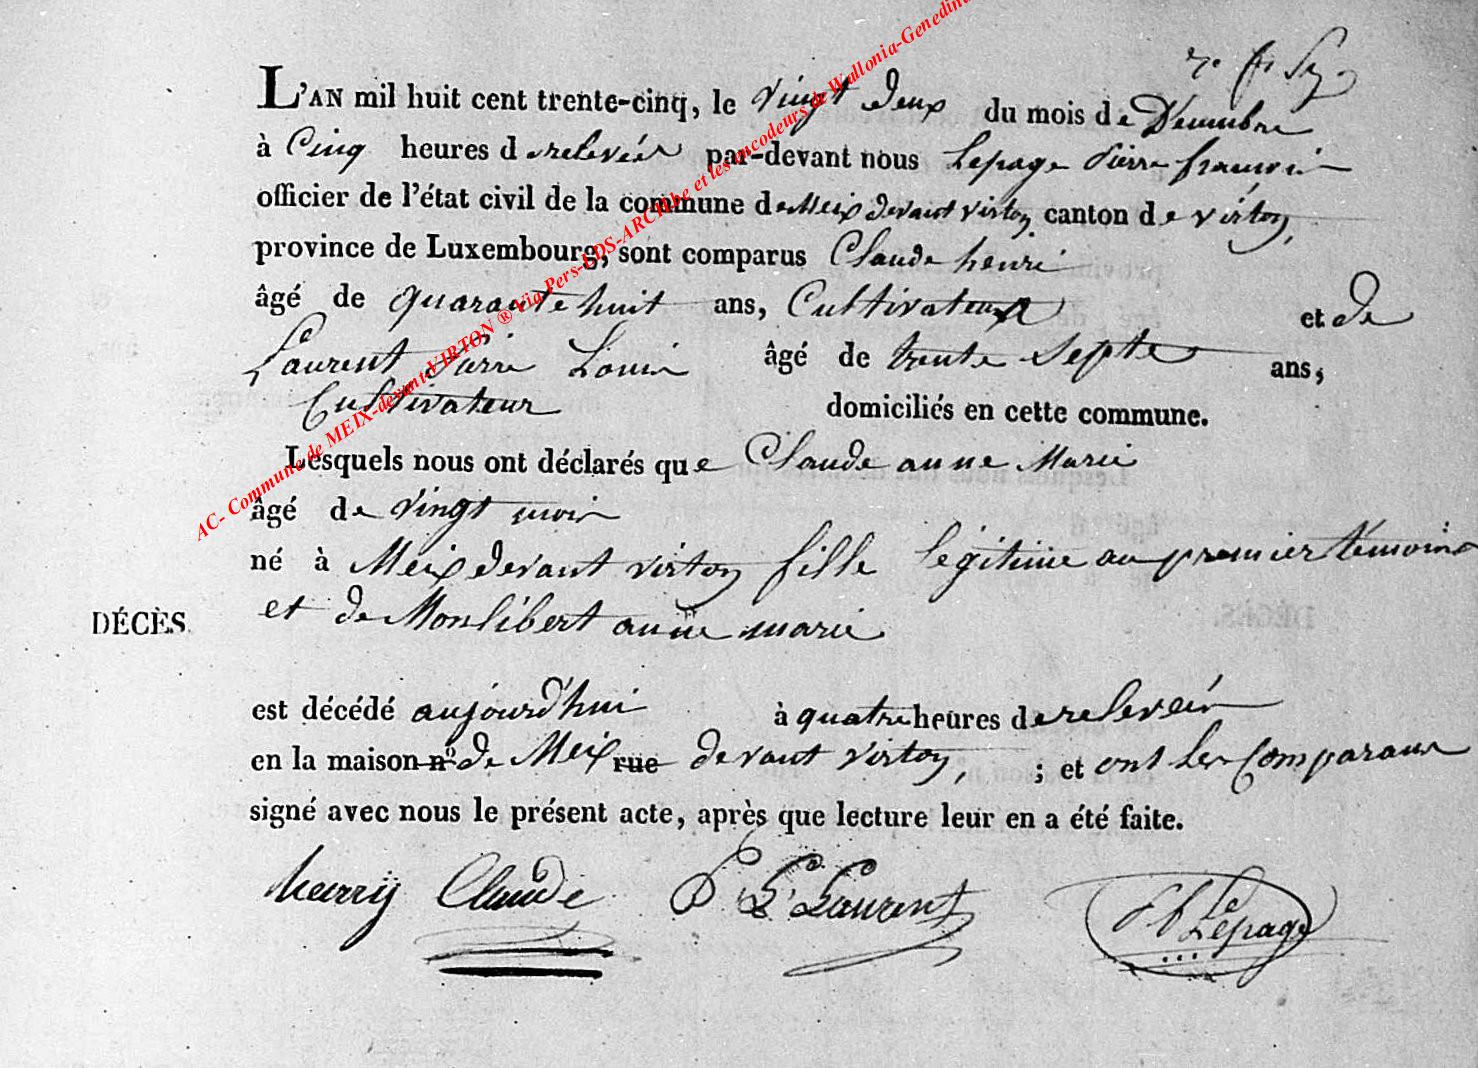 L'AN mil huit cent trente-cinq, le vingt deux du mois de Decembre
à Cinq heures de relevée par-devant nous Lepage Pierre francois
officier de l'état civil de la commune de Meix devant virton canton de virton,
province de Luxembourg, sont comparus Claude henri
âgé de quarante huit ans, Cultivateur et de
Laurent Pierre Louis âgé de trente Septe ans,
Cultivateur domiciliés en cette commune.
Lesquels nous ont déclarés que Claude anne Marie
âgé de vingt mois
né à Meix devant virton fille légitime au premier témoins
DÉCÈS. et de Monlibert anne marie
est décédé aujourd'hui à quatre heures de relevée
en la maison n° de Meix rue devant virton, ; et ont les Comparans
signé avec nous le présent acte, après que lecture leur en a été faite.
henry Claude P L Laurent Lepage
AC- Commune de MEIX-devant-VIRTON ® Via Pers-LDS-ARCH.be et les encodeurs de Wallonia-Genedina